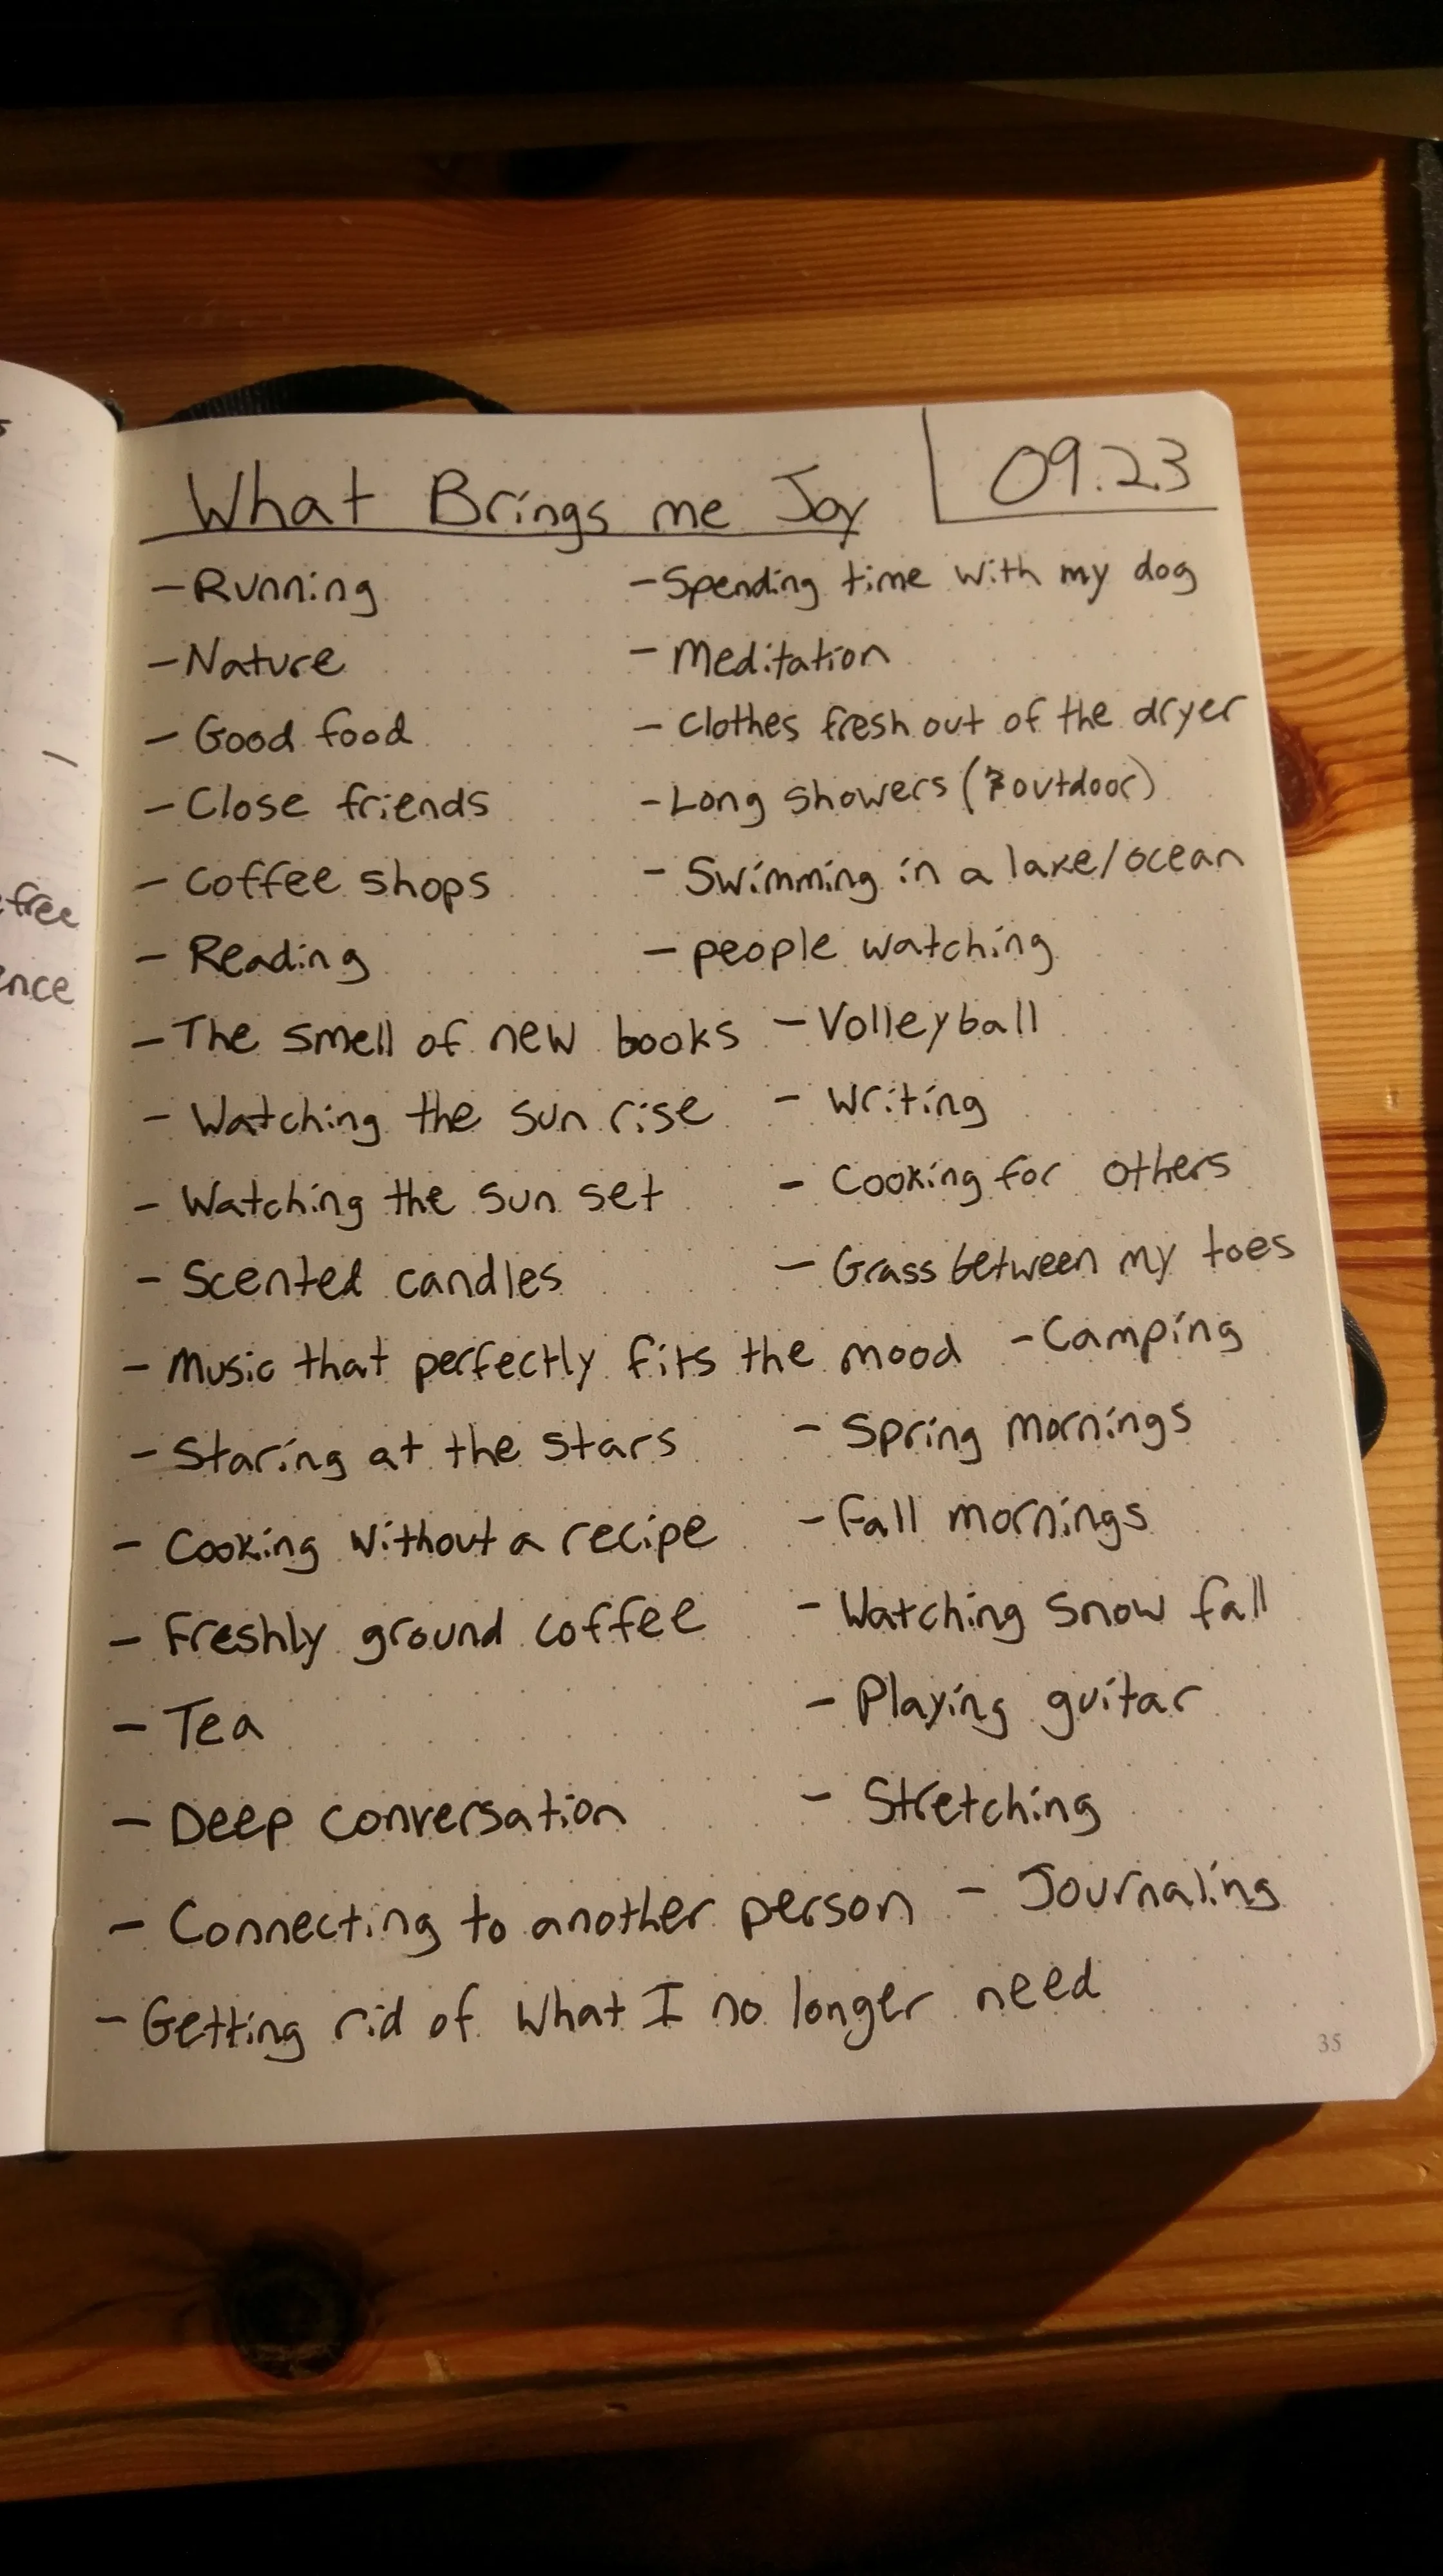 s
free
ence
What Brings me Joy
09.23
- Running
- Nature
- Good food
- Close friends
- Coffee shops
- Reading
- The smell of new books
- Watching the sun rise
- Watching the sun set
- Scented candles
- Music that perfectly fits the mood
- Staring at the stars
- Cooking without a recipe
- Freshly ground coffee
- Tea
- Deep conversation
- Connecting to another person
- Getting rid of what I no longer need
- Spending time with my dog
- Meditation
- Clothes fresh out of the dryer
- Long showers (outdoor)
- Swimming in a lake/ocean
- people watching
- Volleyball
- Writing
- Cooking for others
- Grass between my toes
- Camping
- Spring mornings
- Fall mornings
- Watching snow fall
- Playing guitar
- Stretching
- Journaling
35